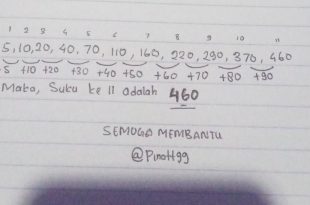 1 2 3 4 5 6 7 8 9 10 11
5, 10, 20, 40, 70, 110, 160, 220, 290, 370, 460
5 +10 +20 +30 +40 +50 +60 +70 +80 +90
Maka, Suku ke 11 adalah 460
SEMOGA MEMBANTU
@PinoH99